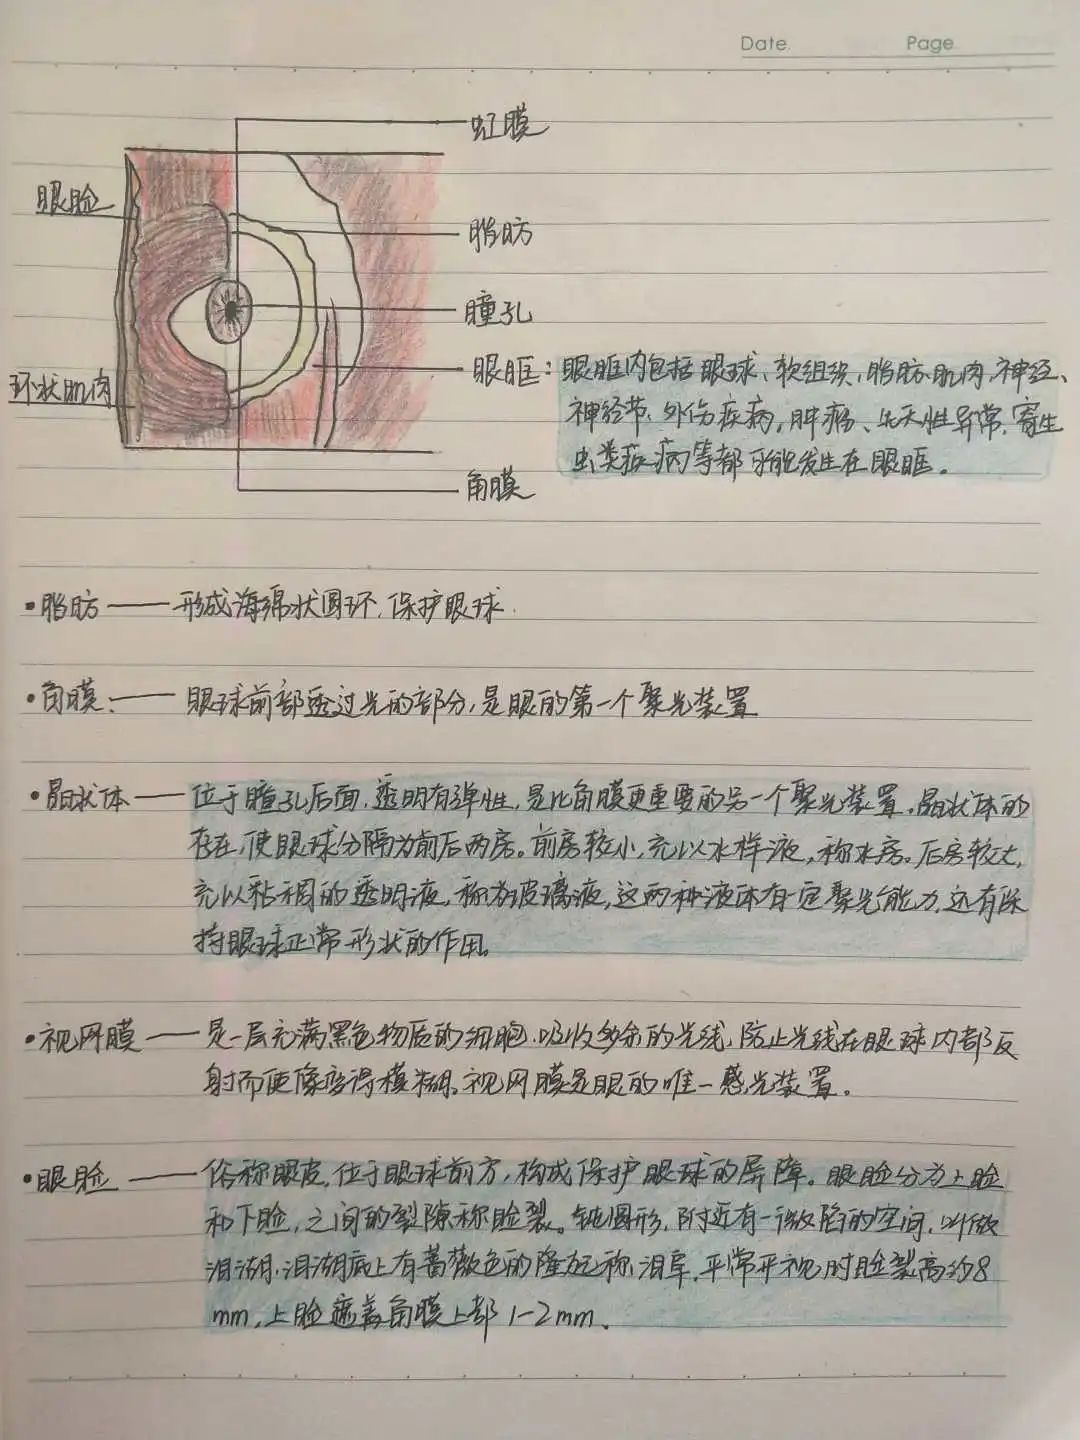 Date
Page
虹膜
眼睑
脂肪
瞳孔
环状肌肉
眼眶：眼眶内包括眼球、软组织、脂肪、肌肉、神经、
神经节、外伤疾病，肿瘤、先天性异常，寄生
虫类疾病等都可能发生在眼眶。
角膜
•脂肪——形成海绵状圆环，保护眼球.
•角膜：——眼球前部透过光的部分，是眼的第一个聚光装置
•晶状体——位于瞳孔后面，透明有弹性，是比角膜更重要的另一个聚光装置。晶状体的
存在，使眼球分隔为前后两房。前房较小，充以水样液，称水房。后房较大，
充以粘稠的透明液，称为玻璃液，这两种液体有一定聚光能力，还有保
持眼球正常形状的作用。
•视网膜——是一层充满黑色物质的细胞，吸收多余的光线，防止光线在眼球内部反
射而使像变得模糊。视网膜是眼的唯一感光装置。
•眼睑——俗称眼皮，位于眼球前方，构成保护眼球的屏障。眼睑分为上睑
和下睑，之间的裂隙称睑裂。钝圆形，附近有一微陷的空间，叫做
泪湖，泪湖底上有蔷薇色的隆起称泪阜，平常平视时睑裂高约8
mm，上睑遮盖角膜上部1-2mm。